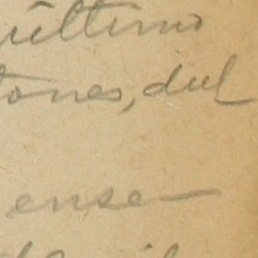 último
tones, del
ense-